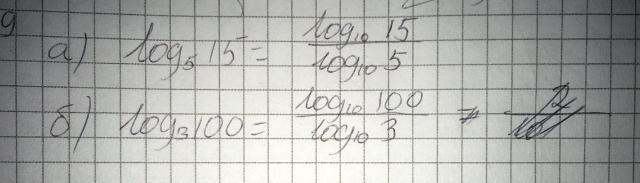 9
а) log₅ 15 = log₁₀ 15 / log₁₀ 5
б) log₃ 100 = log₁₀ 100 / log₁₀ 3 =